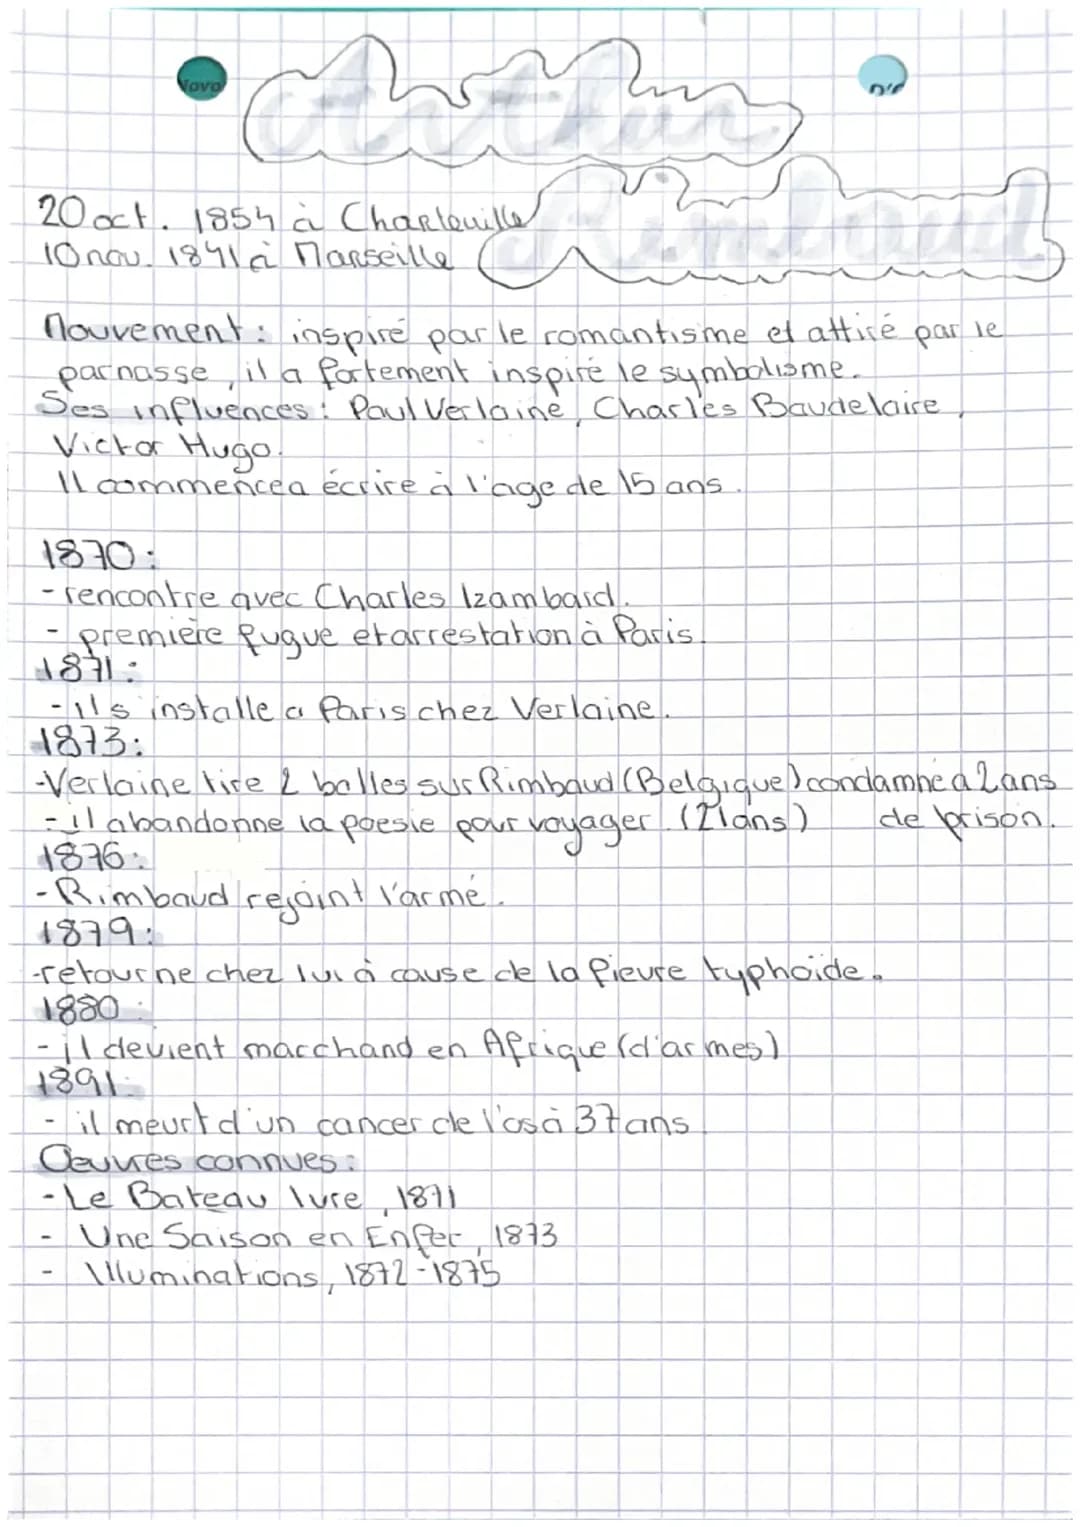 Nova
D'
Arthur
Rimbaud
20 oct. 1854 à Charleville
10 nov. 1841 à Marseille
Mouvement : inspiré par le romantisme et attiré par le
parnasse, il a fortement inspiré le symbolisme.
Ses influences : Paul Verlaine, Charles Baudelaire,
Victor Hugo.
Il commence a écrire à l'age de 15 ans.
1870 :
- rencontre avec Charles Izambard.
- première fugue et arrestation à Paris.
1871 :
- il s'installe a Paris chez Verlaine.
1873 :
- Verlaine tire 2 balles sur Rimbaud (Belgique) condamné a 2 ans
- il abandonne la poesie pour voyager (21 ans) de prison.
1876 :
- Rimbaud rejoint l'armé.
1879 :
- retourne chez lui à cause de la fievre typhoïde.
1880 :
- il devient marchand en Afrique (d'armes)
1891 :
- il meurt d'un cancer de l'os à 37 ans.
Œuvres connues :
- Le Bateau Ivre, 1871
- Une Saison en Enfer, 1873
- Illuminations, 1872-1875